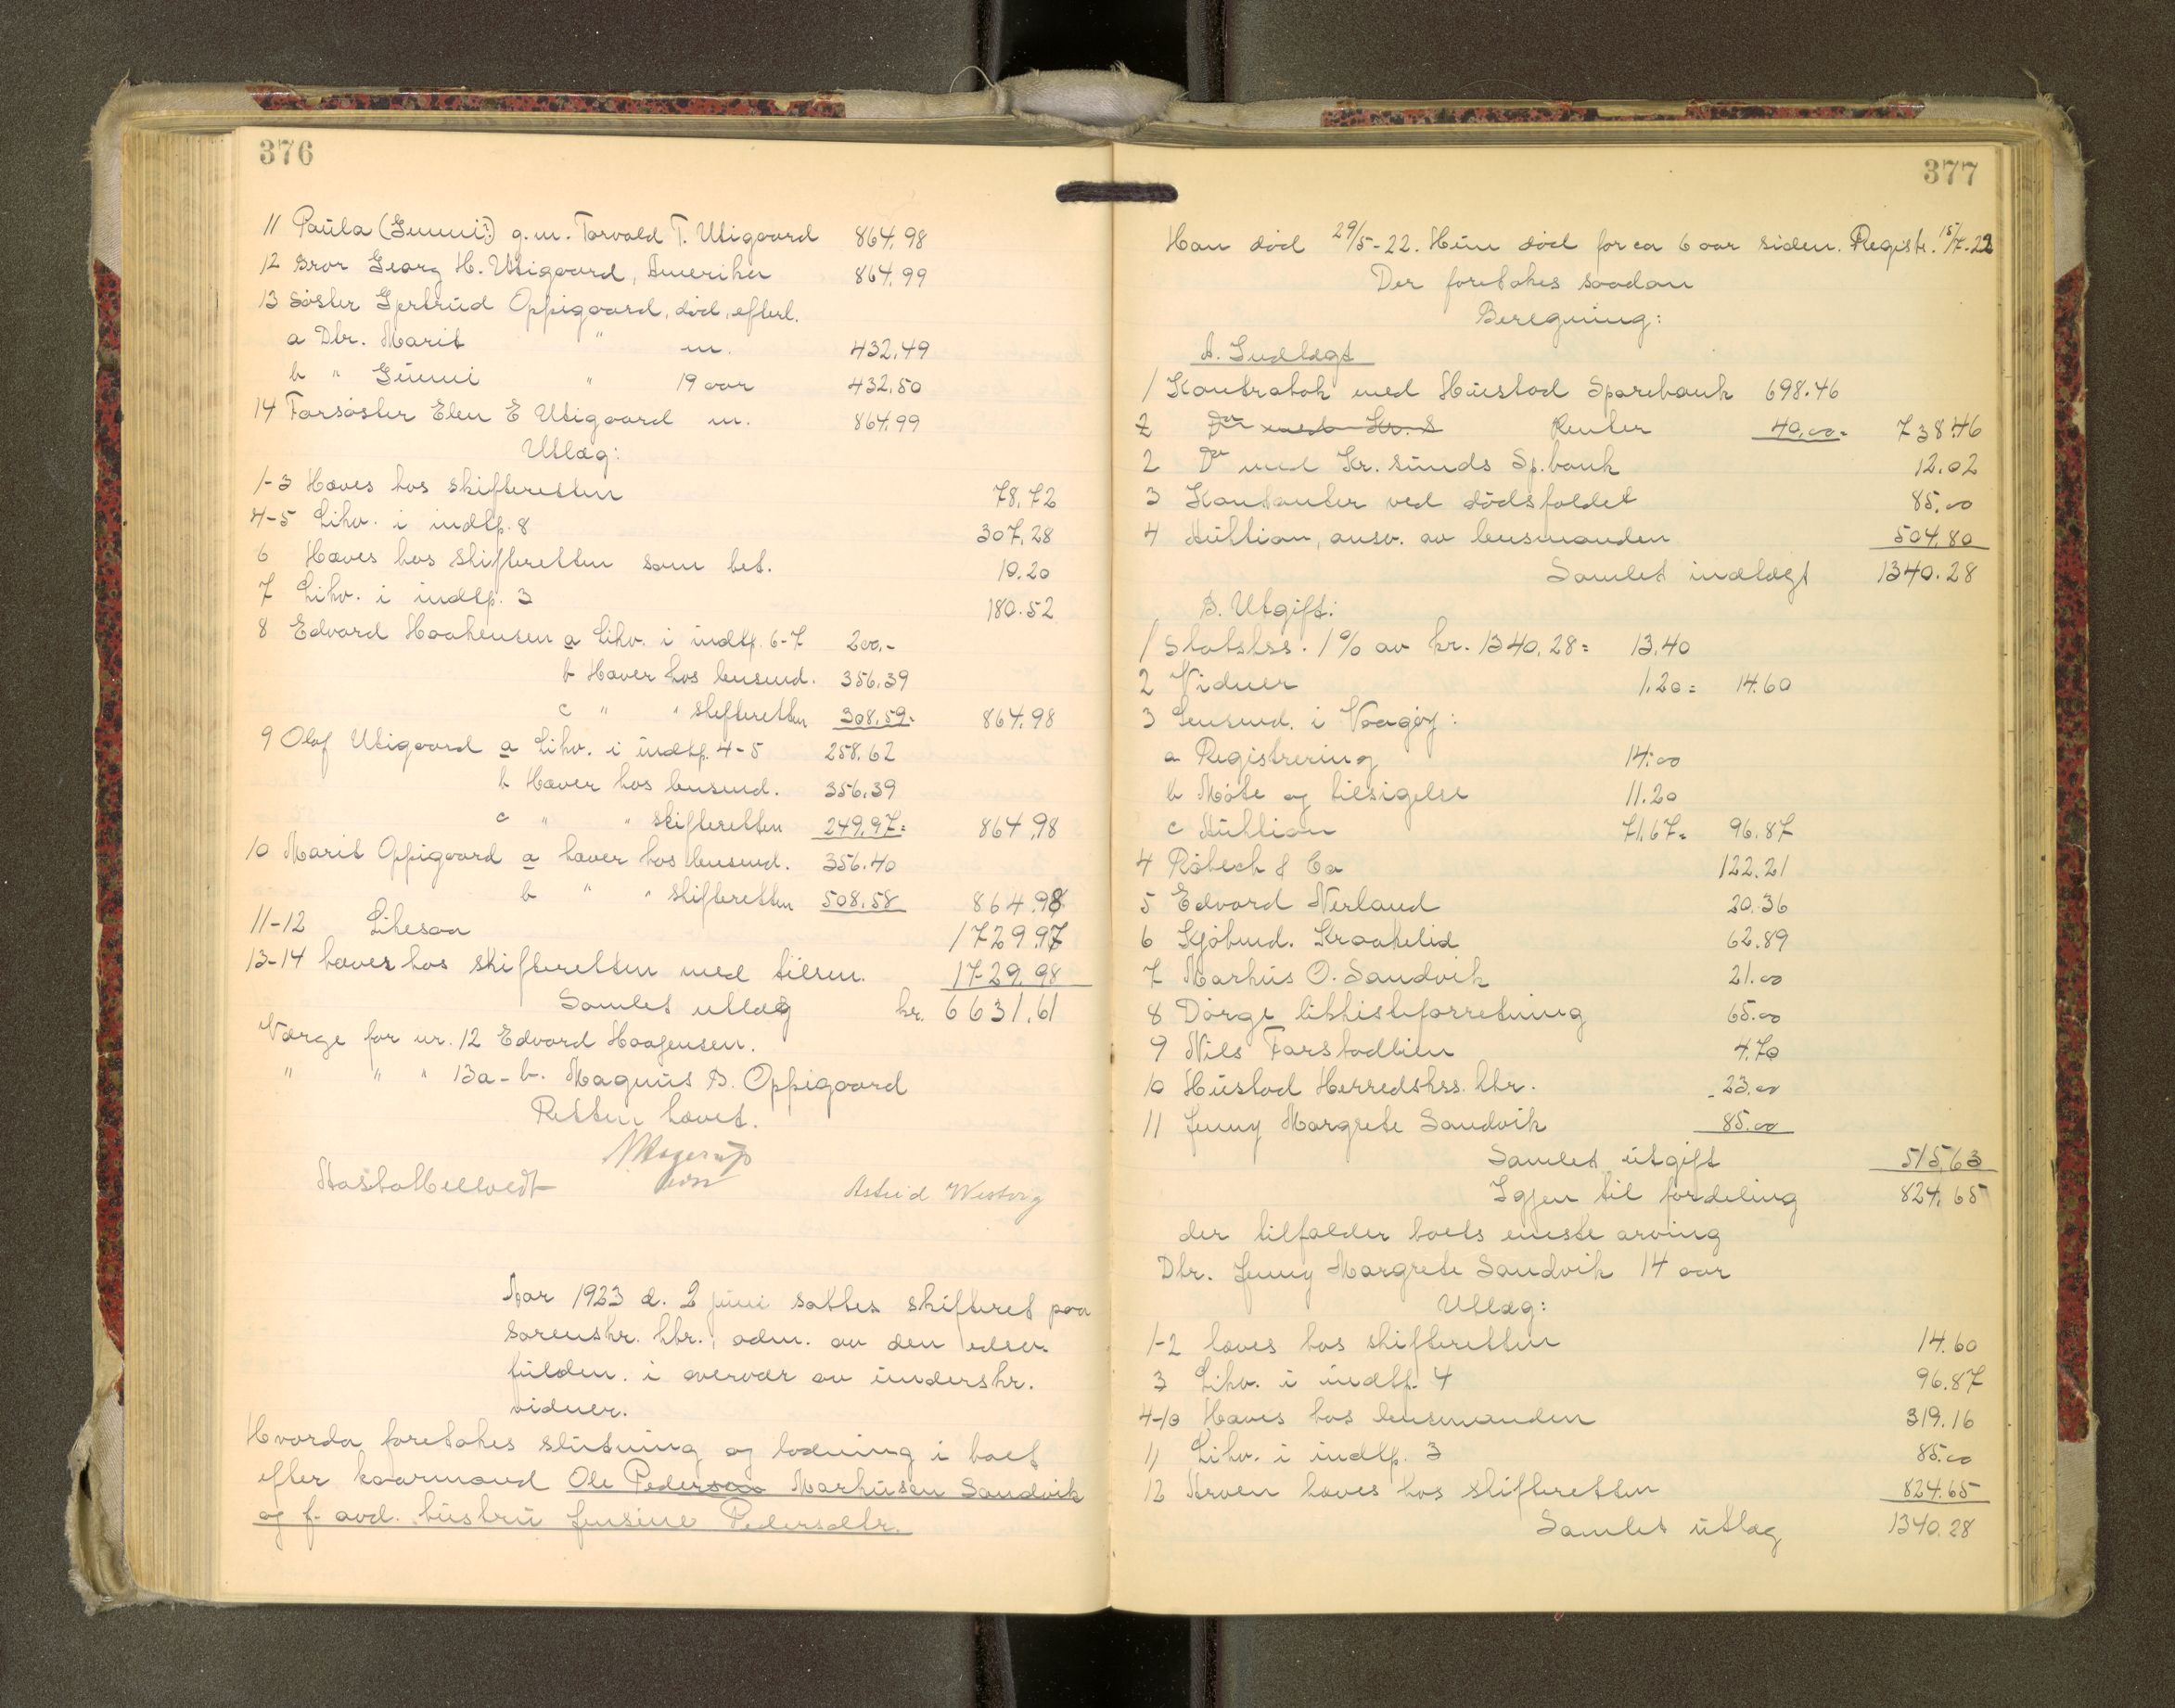 376
11 Paula (Gunni?) g.m. Torvald T. Utigaard 864.98
12 Bror Georg H. Utigaard, Amerika 864.99
13 Søster Gjertrud Oppigaard, død, efterl.
a Dtr. Marit " m. 432.49
b " Gunni " 19 aar 432.50
14 Farsøster Elen E Utigaard m. 864.99
Utlæg:
1-3 Hæves hos skifteretten 78.72
4-5 Likv. i indtp. 8 307.28
6 Hæves hos skifteretten som bet. 10.20
7 Likv. i indtp. 3 180.52
8 Edvard Haakensen a Likv. i indtp. 6-7 200,-
b Hæver hos lensmd. 356.39
c " " skifteretten 308.59= 864.98
9 Olaf Utigaard a Likv. i indtp. 4-5 258.62
b Hæver hos lensmd. 356.39
c " " skifteretten 249.97= 864.98
10 Marit Oppigaard a hæver hos lensmd. 356.40
b " " skifteretten 508.58 864.98
11-12 Likesaa 1729.97
13-14 hæves hos skifteretten med tilsm. 1729.98
Samlet utlæg kr. 6631.61
Værge for nr. 12 Edvard Haagensen.
" " " 13a-b. Magnus B. Oppigaard
Retten hævet.
Aasta Astrid Westvig
Aar 1923 d. 2 juni sattes skifteret paa
sorenskr. ktr., adm. av den edsv.
fuldm. i overvær av underskr.
vidner.
Hvorda foretakes slutning og lodning i boet
efter kaarmand Ole Pedersen Markusen Sandvik
og f. avd. hustru Jensine Pedersdtr.
377
Han død 29/5-22. Hun død for ca 6 aar siden. Registr. 15/7.22
Der foretakes saadan
Beregning:
A. Indtægt
1 Kontrabok med Hustad Sparebank 698.46
2 Do med Kr. S Renter 40.00= 738.46
2 Do med Kr.sunds Sp.bank 12.02
3 Kontanter ved dødsfaldet 85.00
4 Auktion, ansv. av lensmanden 504.80
Samlet indtægt 1340.28
B. Utgift:
1 Statskss. 1% av kr. 1340.28= 13.40
2 Vidner 1.20= 14.60
3 Lensmd. i Vaagøy:
a Registrering 14.00
b Møte og tilsigelse 11.20
c Auktion 71.67= 96.87
4 Røbech & Co 122.21
5 Edvard Nerland 20.36
6 Kjøbmd. Kraakelid 62.89
7 Markus O. Sandvik 21.00
8 Dørge likkisteforretning 65.00
9 Nils Farstadlien 4.70
10 Hustad Herredskss. ktr. 23.00
11 Jenny Margrete Sandvik 85.00
Samlet utgift 515.63
Igjen til fordeling 824.65
der tilfalder boets eneste arving
Dtr. Jenny Margrete Sandvik 14 aar
Utlæg:
1-2 hæves hos skifteretten 14.60
3 Likv. i indtp. 4 96.87
4-10 Hæves hos lensmanden 319.16
11 Likv. i indtp. 3 85.00
12 Arven hæves hos skifteretten 824.65
Samlet utlæg 1340.28